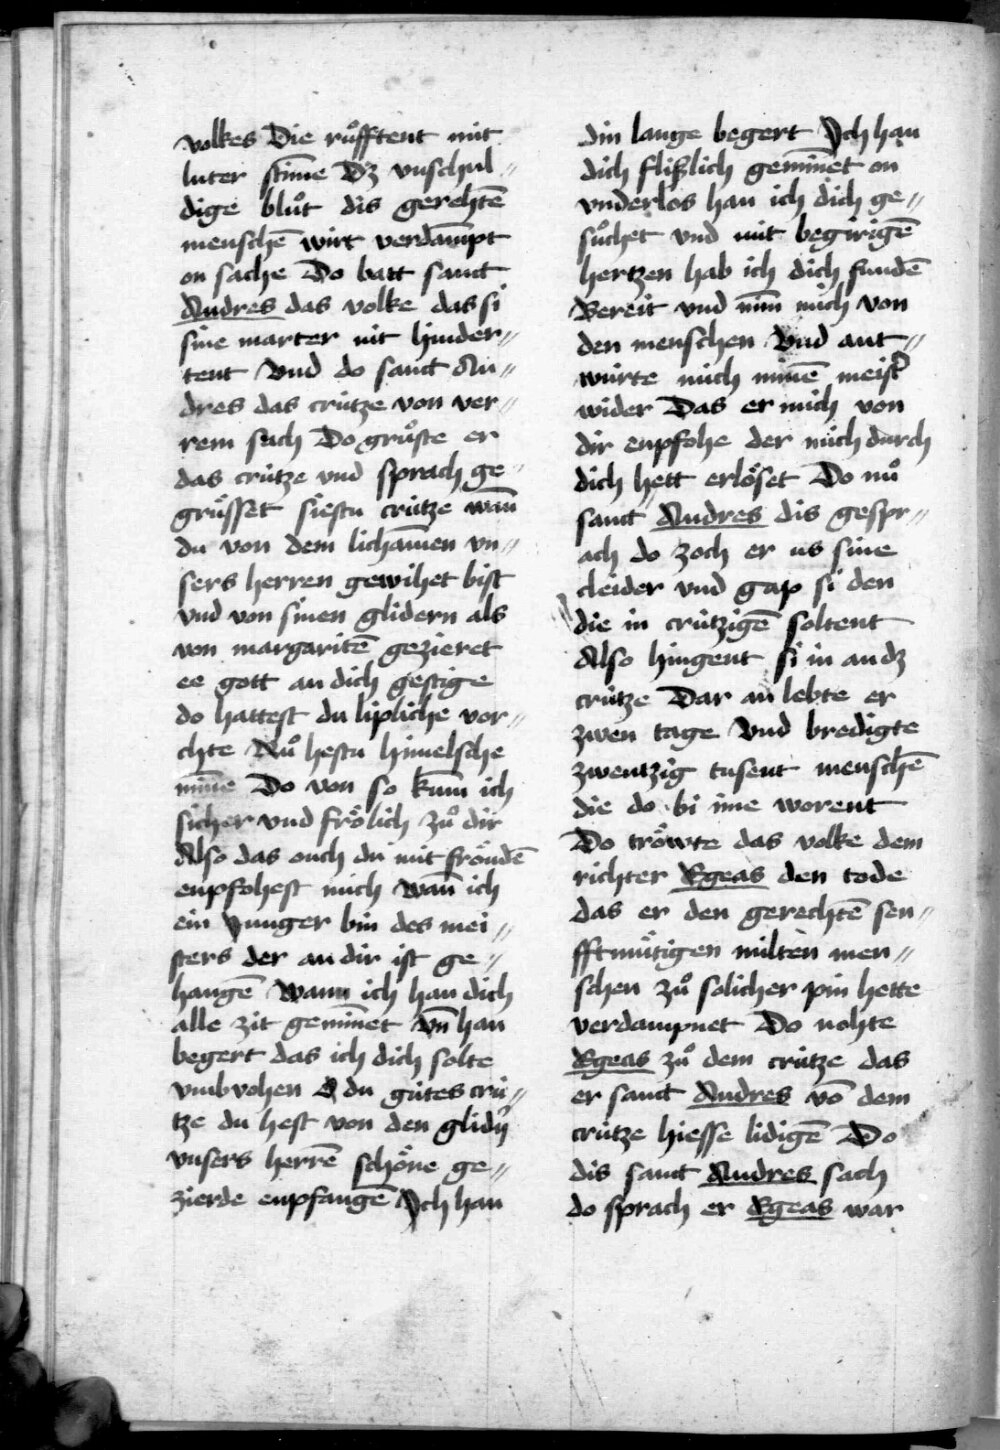 volkes Die ruͦfftent mit
luter stim̄e Dz vnschul⸗
dige bluͦt dis gerehtē
menschē wirt verdampt
on sache Do batt sanct
Andres das volke das si
sine marter nit hinder⸗
tent Vnd do sanct An⸗
dres das crütze von ver⸗
rem sach Do gruͦste er
das crütze vnd sprach ge⸗
gruͤsset siestu crütze wan̄
du von dem licham̄en vn⸗
sers herren gewihet bist
vnd von sinen glidern als
von margaritē gezieret
ee gott an dich gestige
do hattest du lipliche vor⸗
chte Nuͦ hestu himelsche
min̄e Do von so kum̄ ich
sicher vnd froͤlich zuͦ dir
Also das ouch du mit froͤudē
enpfohest mich wan̄ ich
ein Junger bin des mei⸗
sters der an dir ist ge⸗
hangē Wann ich han dich
alle zit gemin̄et vn̄ han
begert das ich dich solte
vmbvohen O du gütes crü⸗
tze du hest von den glidn̄
vnsers herrē schoͤne ge⸗
zierde enpfangē Ich han
din lange begert Ich han
dich flißlich gemin̄et on
vnderlos han ich dich ge⸗
suͦchet vnd mit begirigē
hertzen hab ich dich fundē
Bereit vnd nim̄ mich von
den menschen Vnd ant⸗
würte mich minē meist̄
wider Das er mich von
dir enpfohe der mich durch
dich hett erloͤset Do nuͦ
sanct Andres dis gespr⸗
ach do zoch er us sine
cleider vnd gap si den
die in crützigē soltent
Also hingent si in an dz
crütze Dar an lebte er
zwen tage Vnd bredigte
zwentzig tusent menschē
die do bi ime worent
Do troͤwte das volke dem
richter Egeas den tode
das er den gerechtē sen⸗
fftmuͤtigen milten men⸗
schen zuͦ solicher pin hette
verdampnet Do nohte
Egeas zuͦ dem crütze das
er sanct Andres vō dem
crütze hiesse lidigē Do
dis sanct Andres sach
do sprach er Egeas war